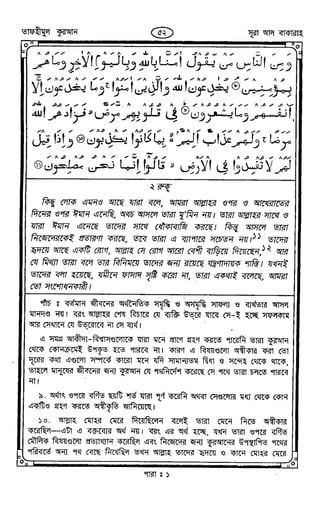 তাফহীমুল কুরআন
৫২
সূরা আল বাকারাহ
وَمِنَ النَّاسِ مَنْ يَّقُوْلُ اٰمَنَّا بِاللّٰهِ وَبِالْيَوْمِ الْاٰخِرِ وَمَا هُمْ
بِمُؤْمِنِيْنَ ۞ يُخٰدِعُوْنَ اللّٰهَ وَالَّذِيْنَ اٰمَنُوْا ۚ وَمَا يَخْدَعُوْنَ اِلَّآ
اَنْفُسَهُمْ وَمَا يَشْعُرُوْنَ ۞ فِيْ قُلُوْبِهِمْ مَّرَضٌ ۙ فَزَادَهُمُ اللّٰهُ
مَرَضًا ۚ وَلَهُمْ عَذَابٌ اَلِيْمٌ ۢ بِمَا كَانُوْا يَكْذِبُوْنَ ۞ وَاِذَا قِيْلَ
لَهُمْ لَا تُفْسِدُوْا فِي الْاَرْضِ ۙ قَالُوْٓا اِنَّمَا نَحْنُ مُصْلِحُوْنَ ⑪
২ রুকূ'
কিছু লোক এমনও আছে যারা বলে, আমরা আল্লাহর ওপর ও আখেরাতের
দিনের ওপর ঈমান এনেছি, অথচ আসলে তারা মু'মিন নয়। তারা আল্লাহর সাথে ও
যারা ঈমান এনেছে তাদের সাথে ধোঁকাবাজি করছে। কিন্তু আসলে তারা
নিজেদেরকেই প্রতারণা করছে, তবে তারা এ ব্যাপারে সচেতন নয়।১১ তাদের
হৃদয়ে আছে একটি রোগ, আল্লাহ সে রোগ আরো বেশী বাড়িয়ে দিয়েছেন,১২ আর
যে মিথ্যা তারা বলে তার বিনিময়ে তাদের জন্য রয়েছে যন্ত্রণাদায়ক শাস্তি। যখনই
তাদের বলা হয়েছে, যমীনে ফাসাদ সৃষ্টি করো না, তারা একথাই বলেছে, আমরা
তো সংশোধনকারী।
পাঁচ ঃ বর্তমান জীবনের অর্থনৈতিক সমৃদ্ধি ও অসমৃদ্ধি সাফল্য ও ব্যর্থতার আসল
মানদণ্ড নয়। বরং আল্লাহর শেষ বিচারে যে ব্যক্তি উত্‌রে যাবে সে-ই হচ্ছে সফলকাম
আর সেখানে যে উত্‌রোবে না সে ব্যর্থ।
এ সমগ্র আকীদা-বিশ্বাসগুলোকে যারা মনে প্রাণে গ্রহণ করতে পারেনি তারা কুরআন
থেকে কোনক্রমেই উপকৃত হতে পারবে না। কারণ এ বিষয়গুলো অস্বীকার করা তো
দূরের কথা এগুলো সম্পর্কে কারো মনে যদি সামান্যতম দ্বিধা ও সন্দেহ থেকে থাকে,
তাহলে মানুষের জীবনের জন্য কুরআন যে পথনির্দেশ করেছে সে পথে তারা চলতে পারবে
না।
৯. অর্থাৎ ওপরে বর্ণিত ছয়টি শর্ত যারা পূর্ণ করেনি অথবা সেগুলোর মধ্য থেকে কোন
একটিও গ্রহণ করতে অস্বীকৃতি জানিয়েছে।
১০. আল্লাহ মোহর মেরে দিয়েছিলেন বলেই তারা মেনে নিতে অস্বীকার
করেছিল—এটা এ বক্তব্যের অর্থ নয়। বরং এর অর্থ হচ্ছে, যখন তারা ওপরে বর্ণিত
মৌলিক বিষয়গুলো প্রত্যাখ্যান করেছিল এবং নিজেদের জন্য কুরআনের উপস্থাপিত পথের
পরিবর্তে অন্য পথ বেছে নিয়েছিল তখন আল্লাহ তাদের হৃদয়ে ও কানে মোহর মেরে
পারা ঃ ১